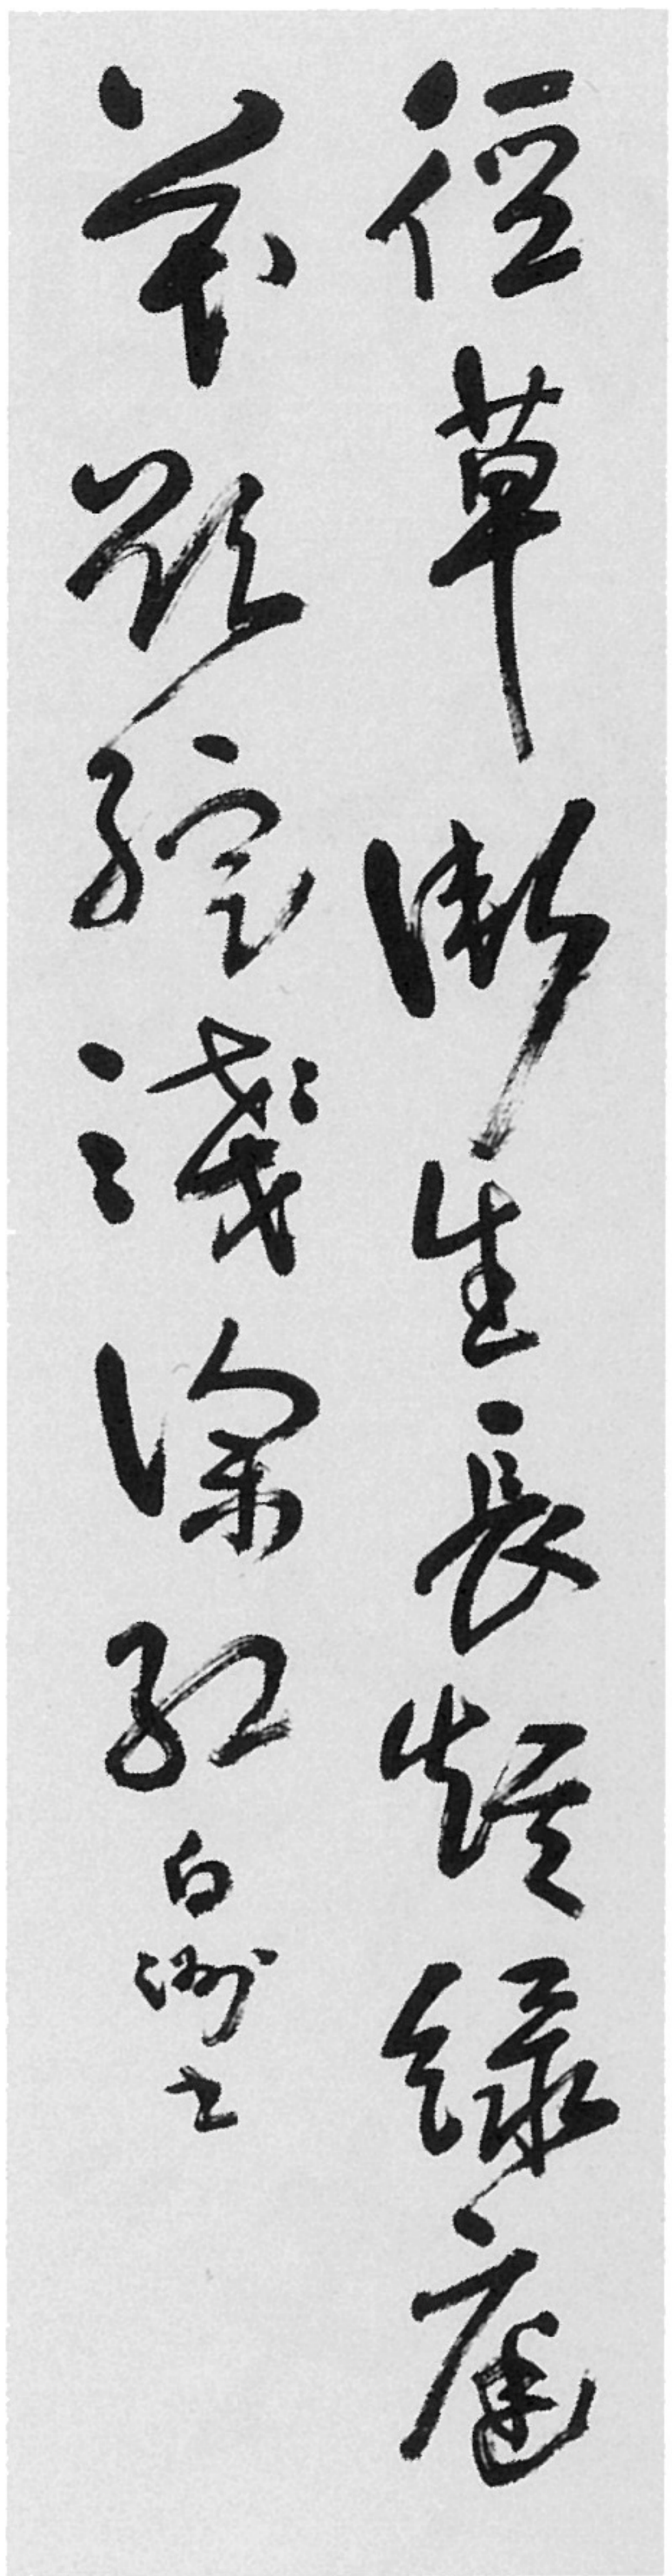 徑草漸生長短綠庭
花欲綻淺深紅 白洲士